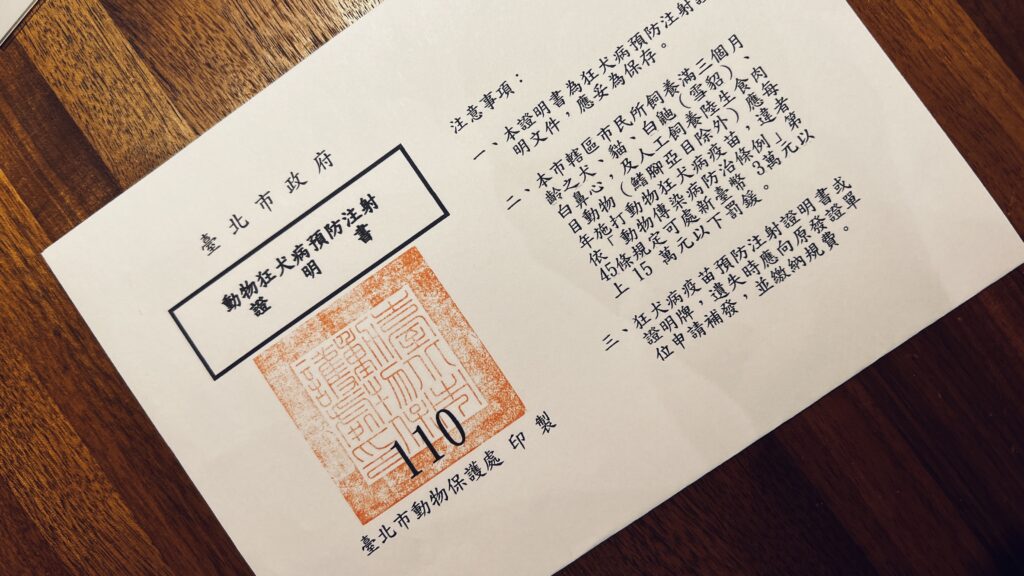 臺北市政府
動物狂犬病預防注射
證明書
110
臺北市動物保護處 印製
注意事項：
一、本證明書為狂犬病預防注射證
明文件，應妥為保存。
二、本市轄區市民所飼養滿三個月
齡之犬、貓、白鼬（雪貂）、
白鼻心，及人工飼養陸生食肉
目動物（鰭腳亞目除外）應每
年施打動物狂犬病疫苗，違者
依「動物傳染病防治條例」第
45條規定可處新臺幣 3萬元以
上 15 萬元以下罰鍰。
三、狂犬病疫苗預防注射證明書或
證明牌，遺失時應向原發證單
位申請補發，並繳納規費。